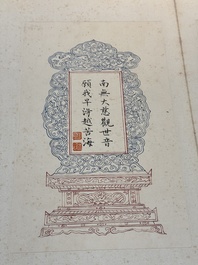 南無大慈觀世音
願我早得越苦海